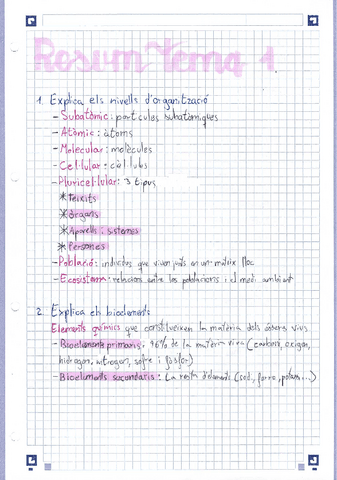 Resum Tema 1
1. Explica els nivells d'organització
- Subatòmic: partícules subatòmiques
- Atòmic: àtoms
- Molecular: molècules
- Cel·lular: cèl·lules
- Pluricel·lular: 3 tipus
* Teixits
* Òrgans
* Aparells i sistemes
* Persones
- Població: individus que viuen junts en un mateix lloc
- Ecosistema: relacions entre les poblacions i el medi ambient
2. Explica els bioelements
Elements químics que constitueixen la matèria dels éssers vius
- Bioelements primaris: 96% de la matèria viva (carboni, oxigen,
hidrogen, nitrogen, sofre i fòsfor)
- Bioelements secundaris: La resta d'elements (sodi, ferro, potassi...)